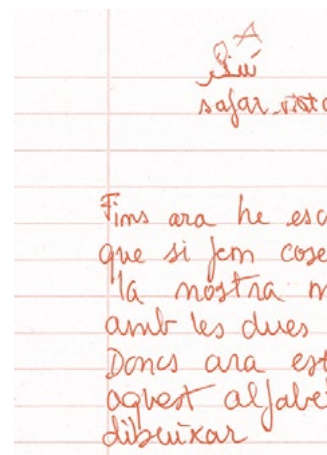 A
safar
Fins ara he esc
que si fem cose
la nostra m
amb les dues
Doncs ara est
aquest alfabe
dibuixar